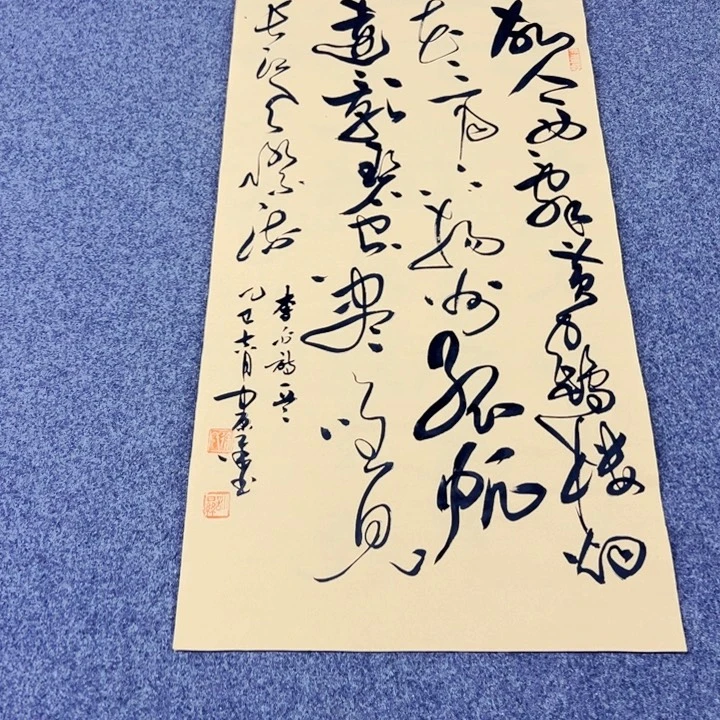 故人西辞黄鹤楼烟
花三月下扬州孤帆
远影碧空尽唯见
长江天际流
李白诗一首
乙巳六月